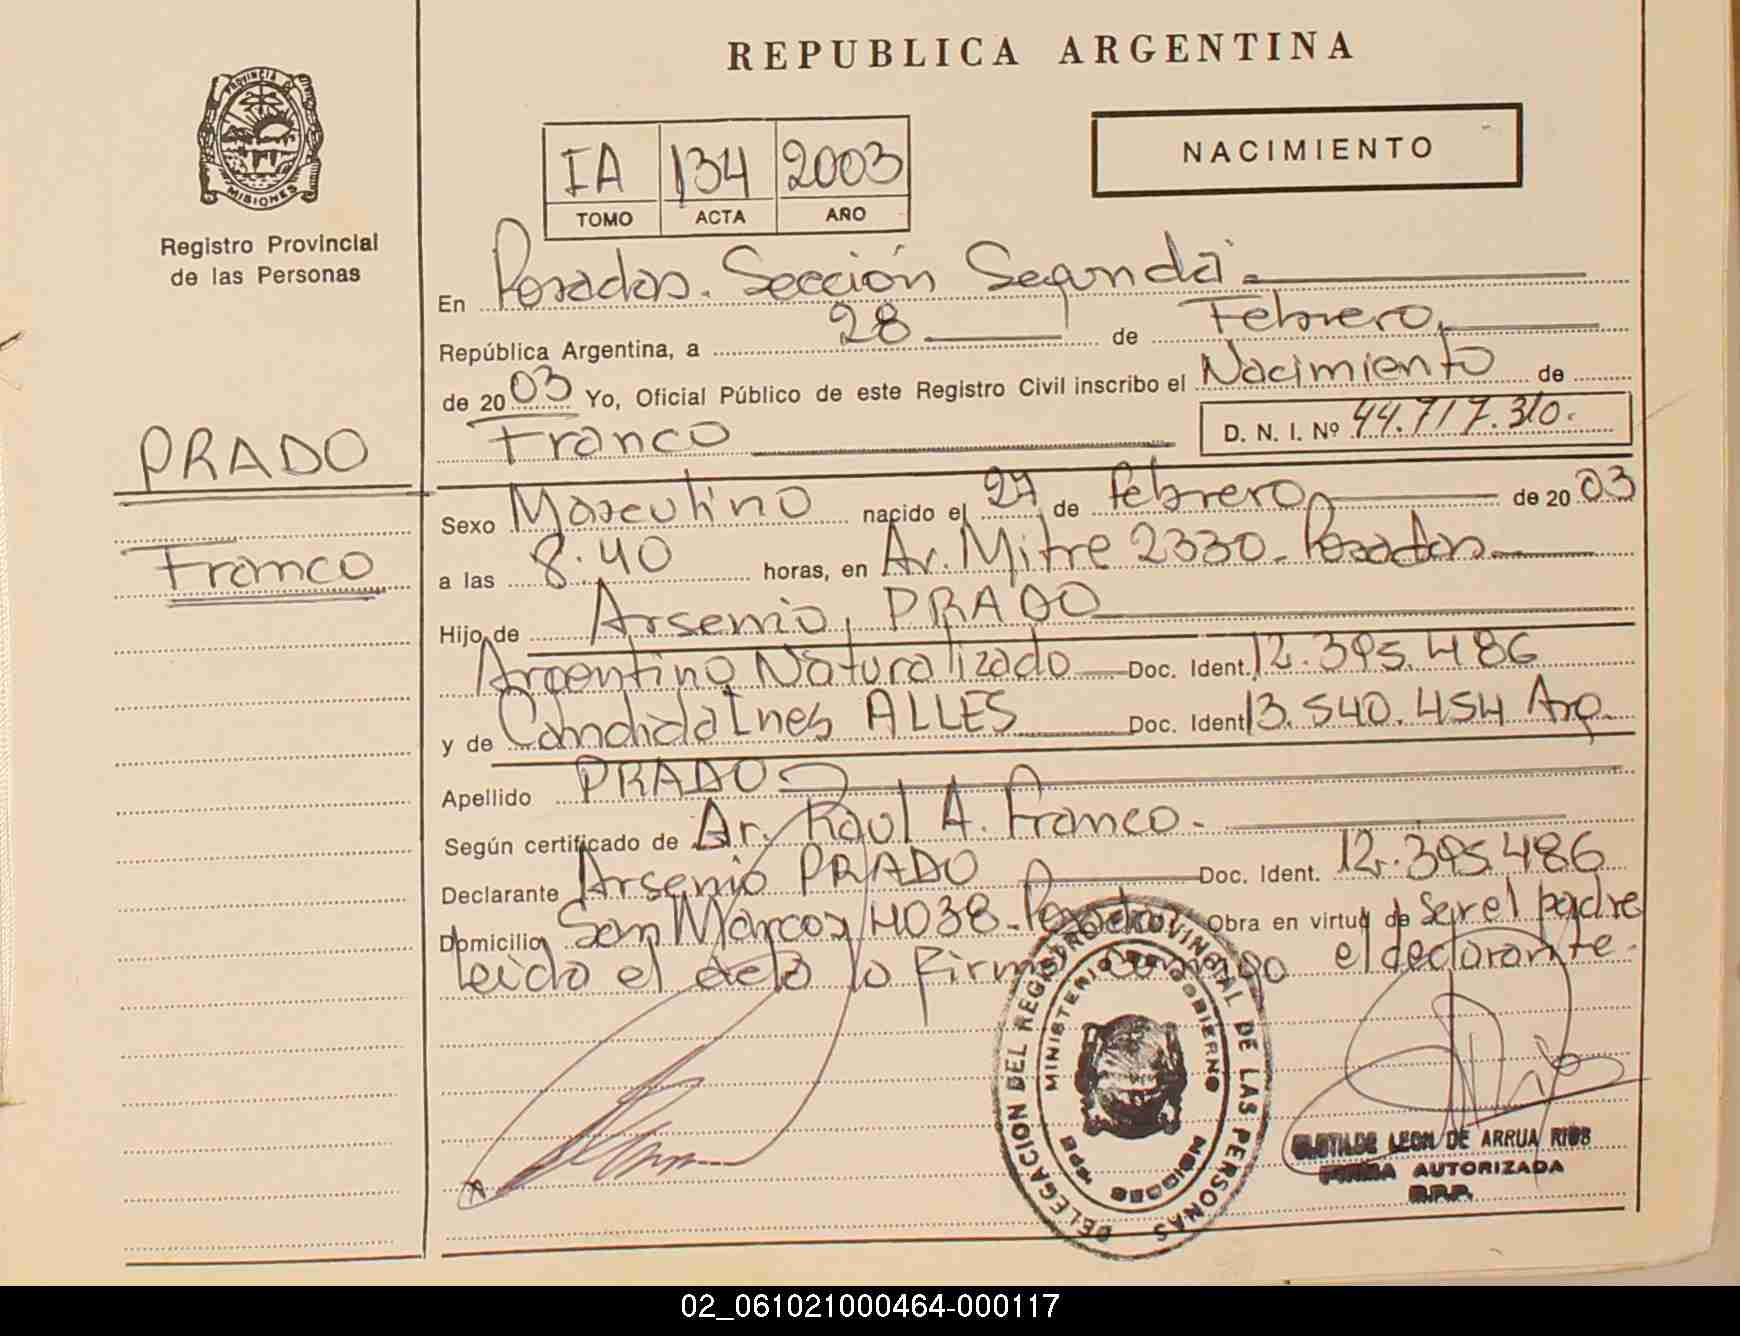 REPUBLICA ARGENTINA
PROVINCIA
MISIONES
Registro Provincial
de las Personas
NACIMIENTO
IA 134 2003
TOMO ACTA AÑO
En Posadas. Sección Segunda
República Argentina, a 28 de Febrero
de 2003 Yo, Oficial Público de este Registro Civil inscribo el Nacimiento de
Franco D. N. I. Nº 44.717.310.
PRADO
Franco
Sexo Masculino nacido el 27 de febrero de 2003
a las 8.40 horas, en Av. Mitre 2330 - Posadas
Hijo de Arsenio, PRADO
Argentino Naturalizado Doc. Ident. 12.395.486
y de Candida Ines ALLES Doc. Ident 13.540.454 Arg.
Apellido PRADO
Según certificado de Dr. Raul A. Franco.
Declarante Arsenio PRADO Doc. Ident. 12.395.486
Domicilio San Marcos 4038 - Posadas Obra en virtud de Ser el padre
Leido el acta lo firma conmigo el declarante.
DELEGACION DEL REGISTRO PROVINCIAL DE LAS PERSONAS
MINISTERIO DE GOBIERNO
MISIONES
CLOTILDE LEON DE ARRUA RIOS
FIRMA AUTORIZADA
02_061021000464-000117